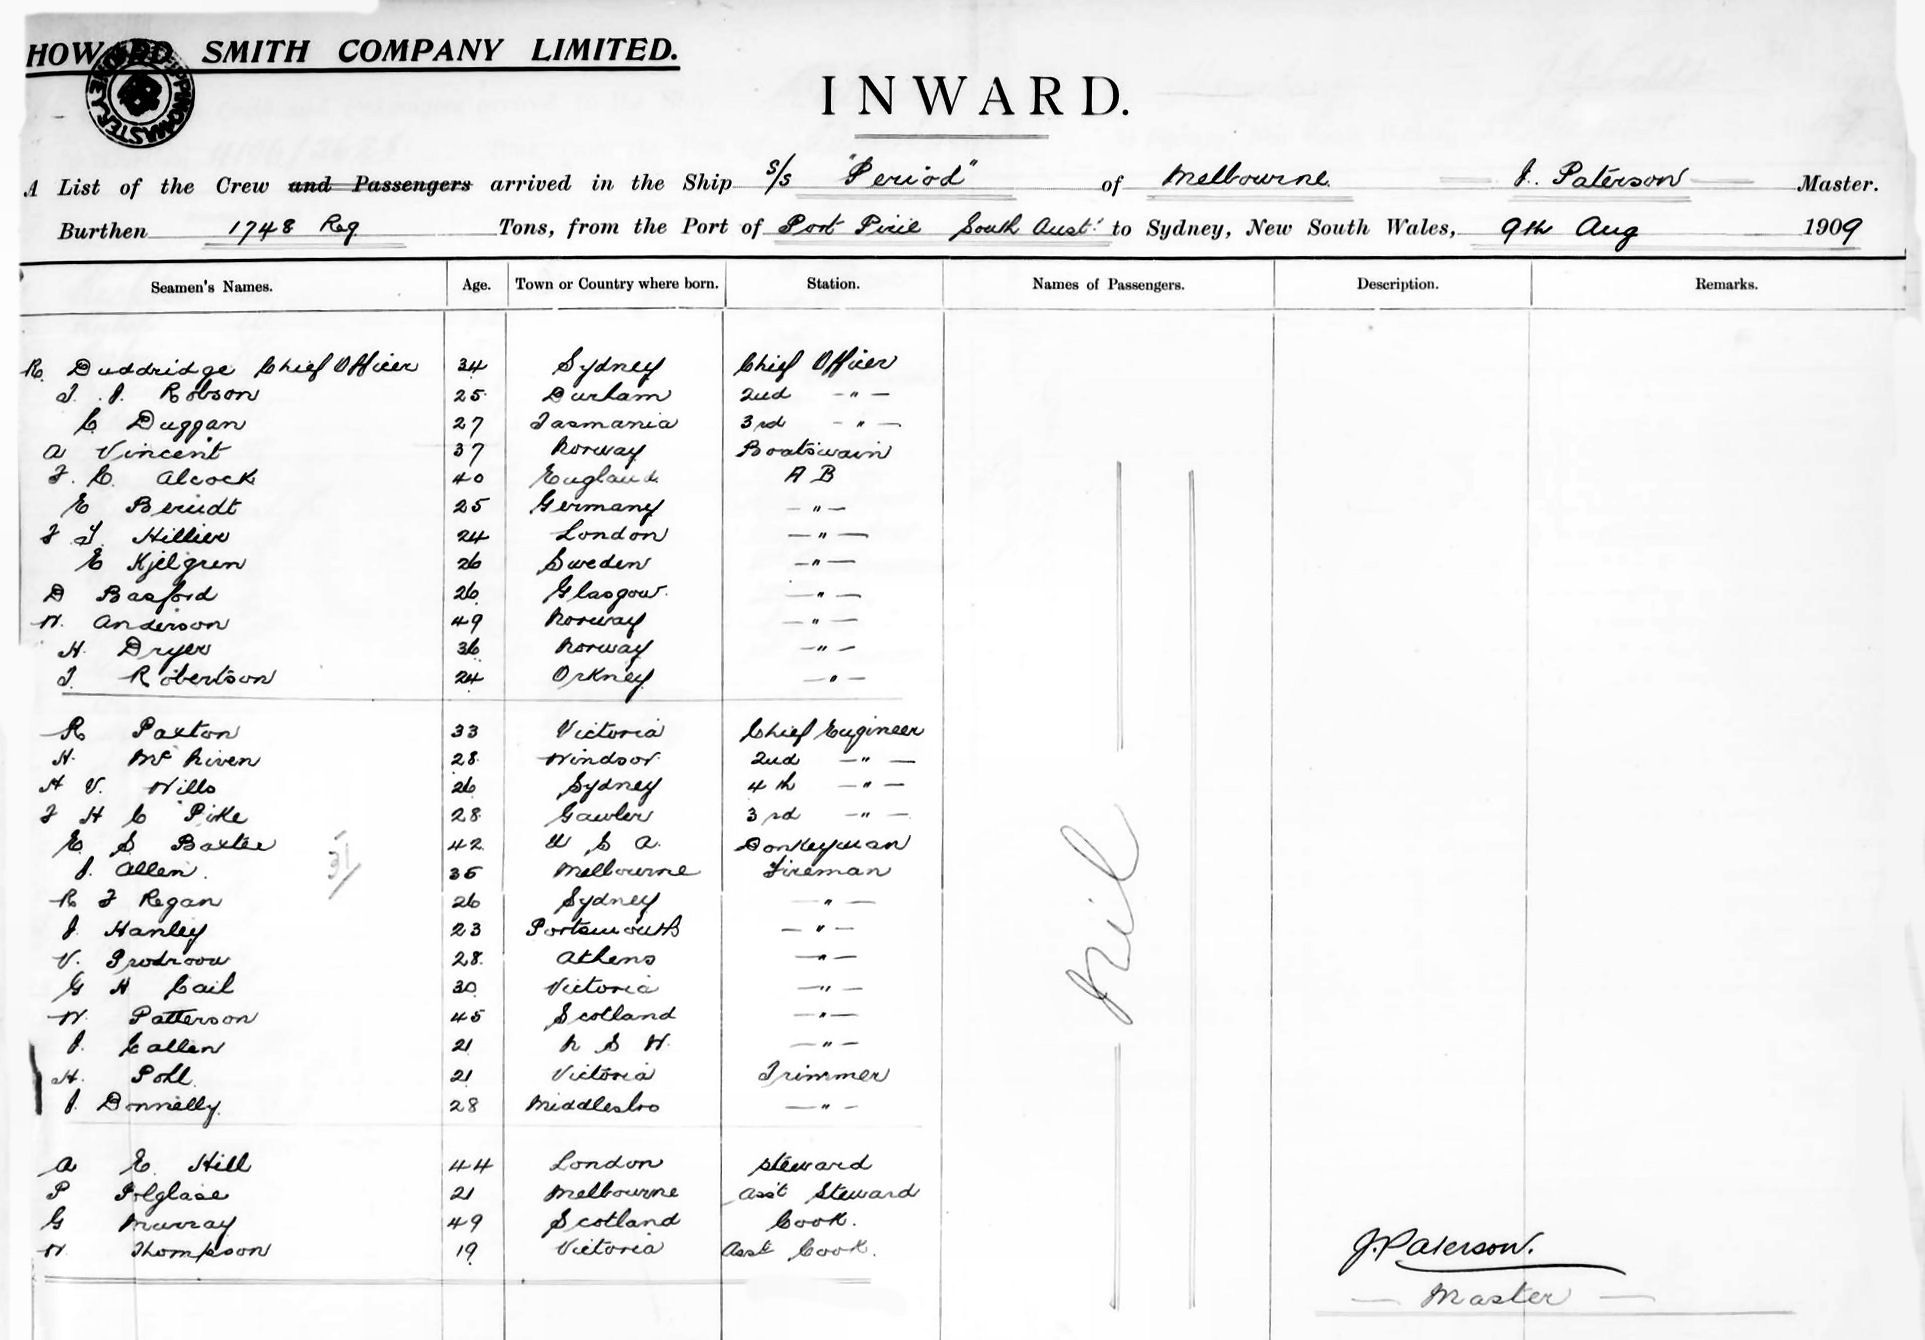 HOWARD SMITH COMPANY LIMITED.
INWARD.
A List of the Crew and Passengers arrived in the Ship S/S "Period" of Melbourne J. Paterson Master.
Burthen 1748 Reg Tons, from the Port of Port Pirie South Aust. to Sydney, New South Wales, 9th Aug 1909
Seamen's Names. Age. Town or Country where born. Station. Names of Passengers. Description. Remarks.
R. Duddridge Chief Officer 34 Sydney Chief Officer
T. J. Robson 25 Durham 2nd - " -
C Duggan 27 Tasmania 3rd - " -
A Vincent 37 Norway Boatswain
F. C. Alcock 40 England A B
E Berndt 25 Germany - " -
F T Hillier 24 London - " -
E Kjelgren 26 Sweden - " -
D Basford 26 Glasgow - " -
W. Anderson 49 Norway - " -
H. Dryer 36 Norway - " -
T. Robertson 24 Orkney - " -
R Paxton 33 Victoria Chief Engineer
H. McNiven 28 Windsor 2nd - " -
H V. Wills 26 Sydney 4th - " -
F H C Pike 28 Gawler 3rd - " -
E. S. Baxter 42 U S A. Donkeyman
J. Allen. 35 Melbourne Fireman
31/
R F Regan 26 Sydney - " -
J Hanley 23 Portsmouth - " -
V. 28 Athens - " -
G H Cail 30 Victoria - " -
W. Patterson 45 Scotland - " -
J. Callen 21 N S W. - " -
H. Poll 21 Victoria Trimmer
J. Donnelly 28 Middlesbro - " -
A E. Hill 44 London Steward
P Polglase 21 Melbourne Asst Steward
G Murray 49 Scotland Cook.
W. Thompson 19 Victoria Asst Cook.
Nil
J. Paterson.
Master